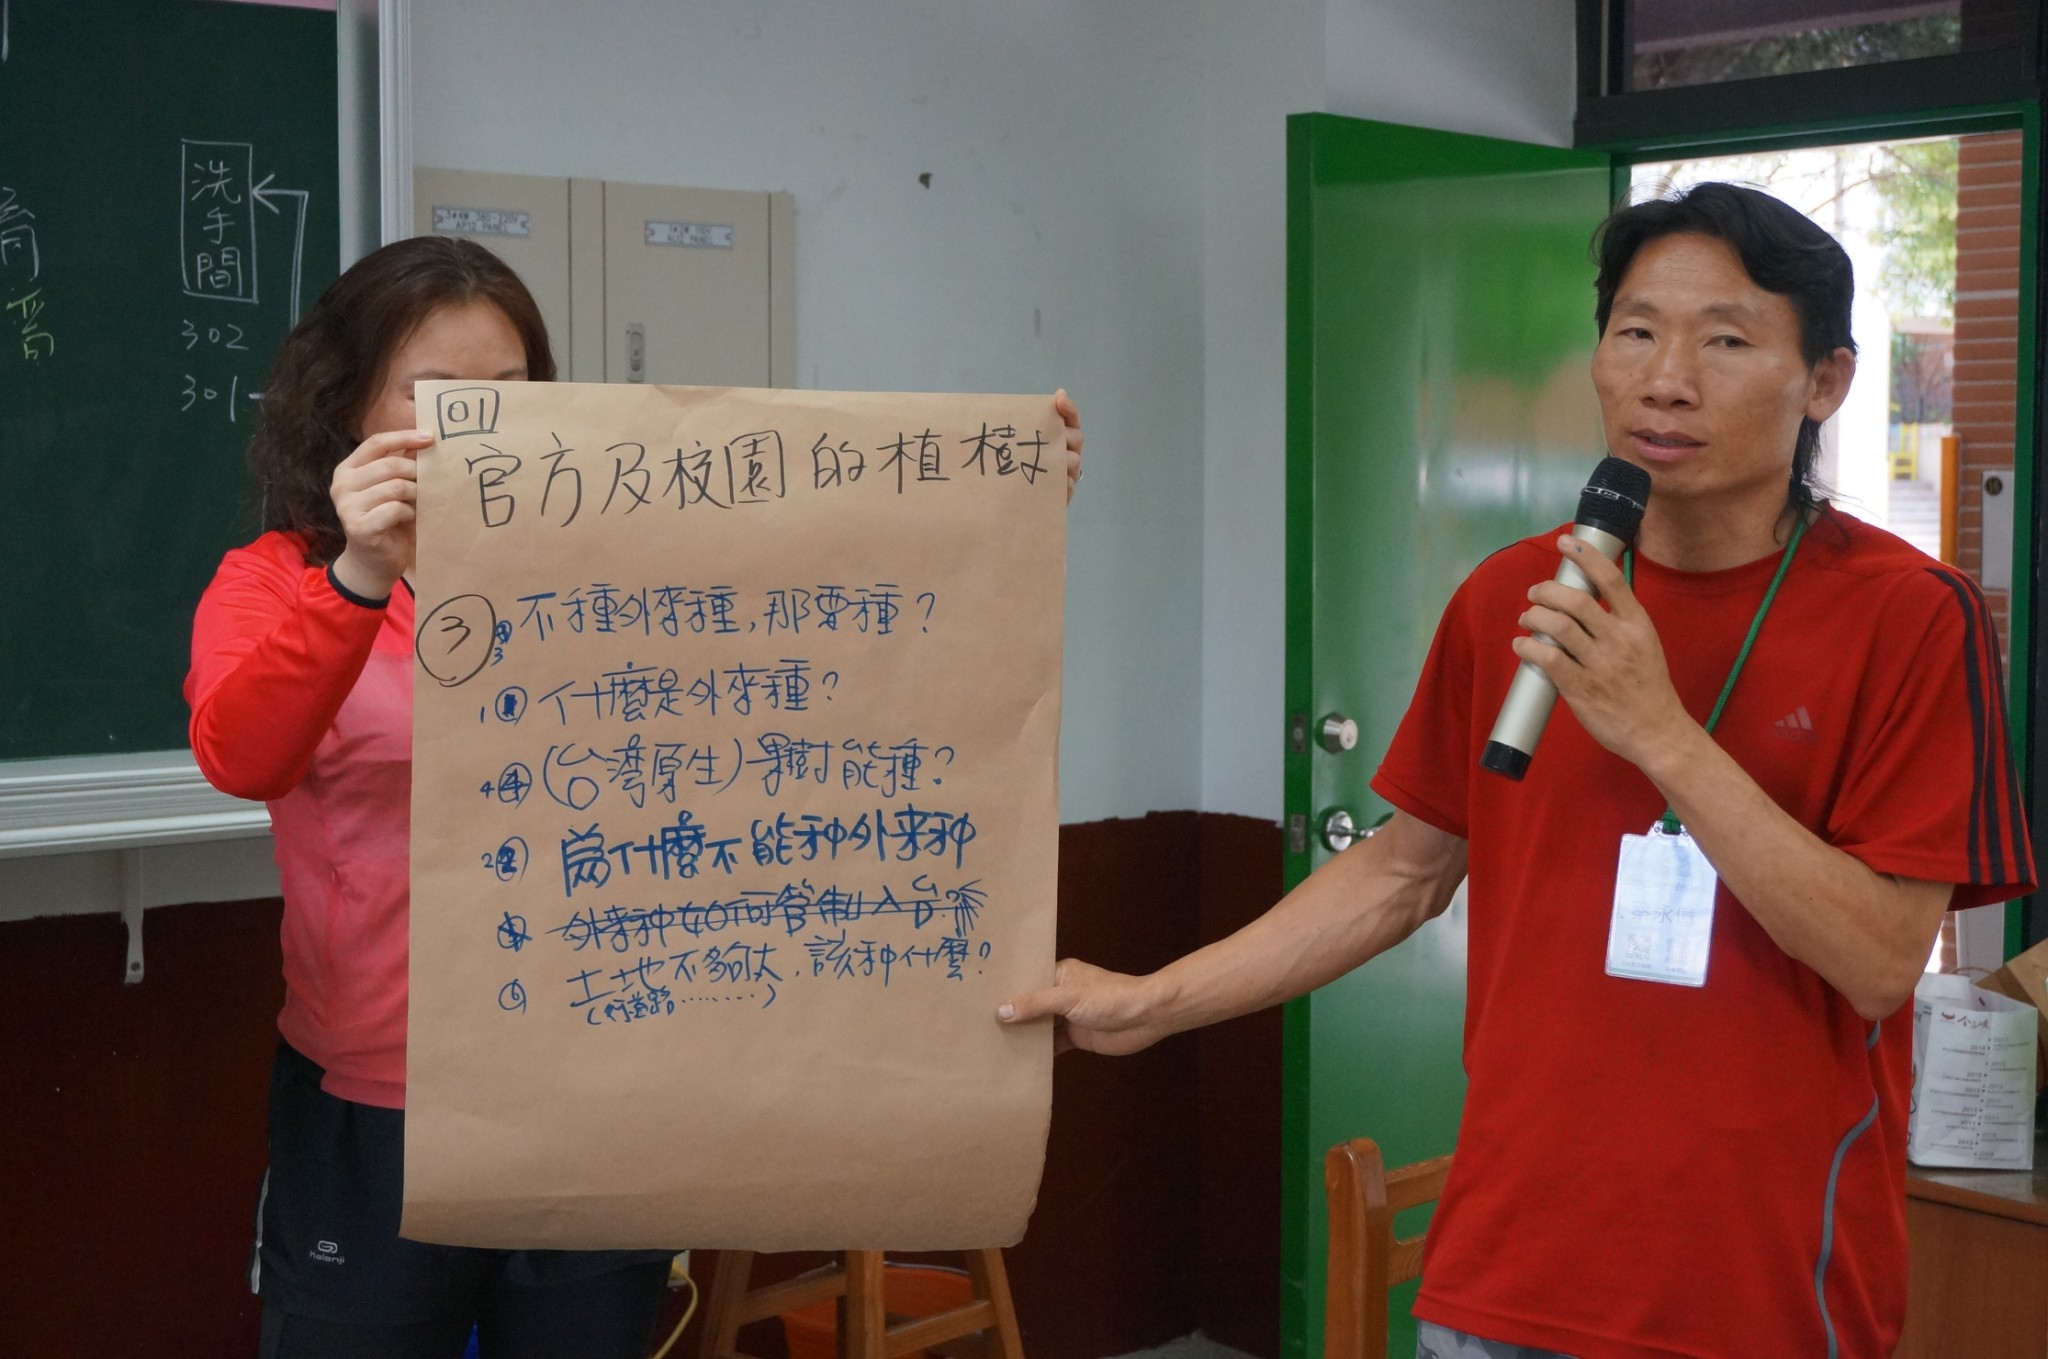 洗手間
302
301
3φ4W 380-220V
AP12 PANEL
AL12 PANEL
01
官方及校園的植樹
3
3 不種外來種,那要種?
1 什麼是外來種?
4 (台灣原生)果樹能種?
2 為什麼不能种外来种
外來种如何管制入台?
⑥ 土地不夠大,該种什麼?
(行道路………)
Kalenji